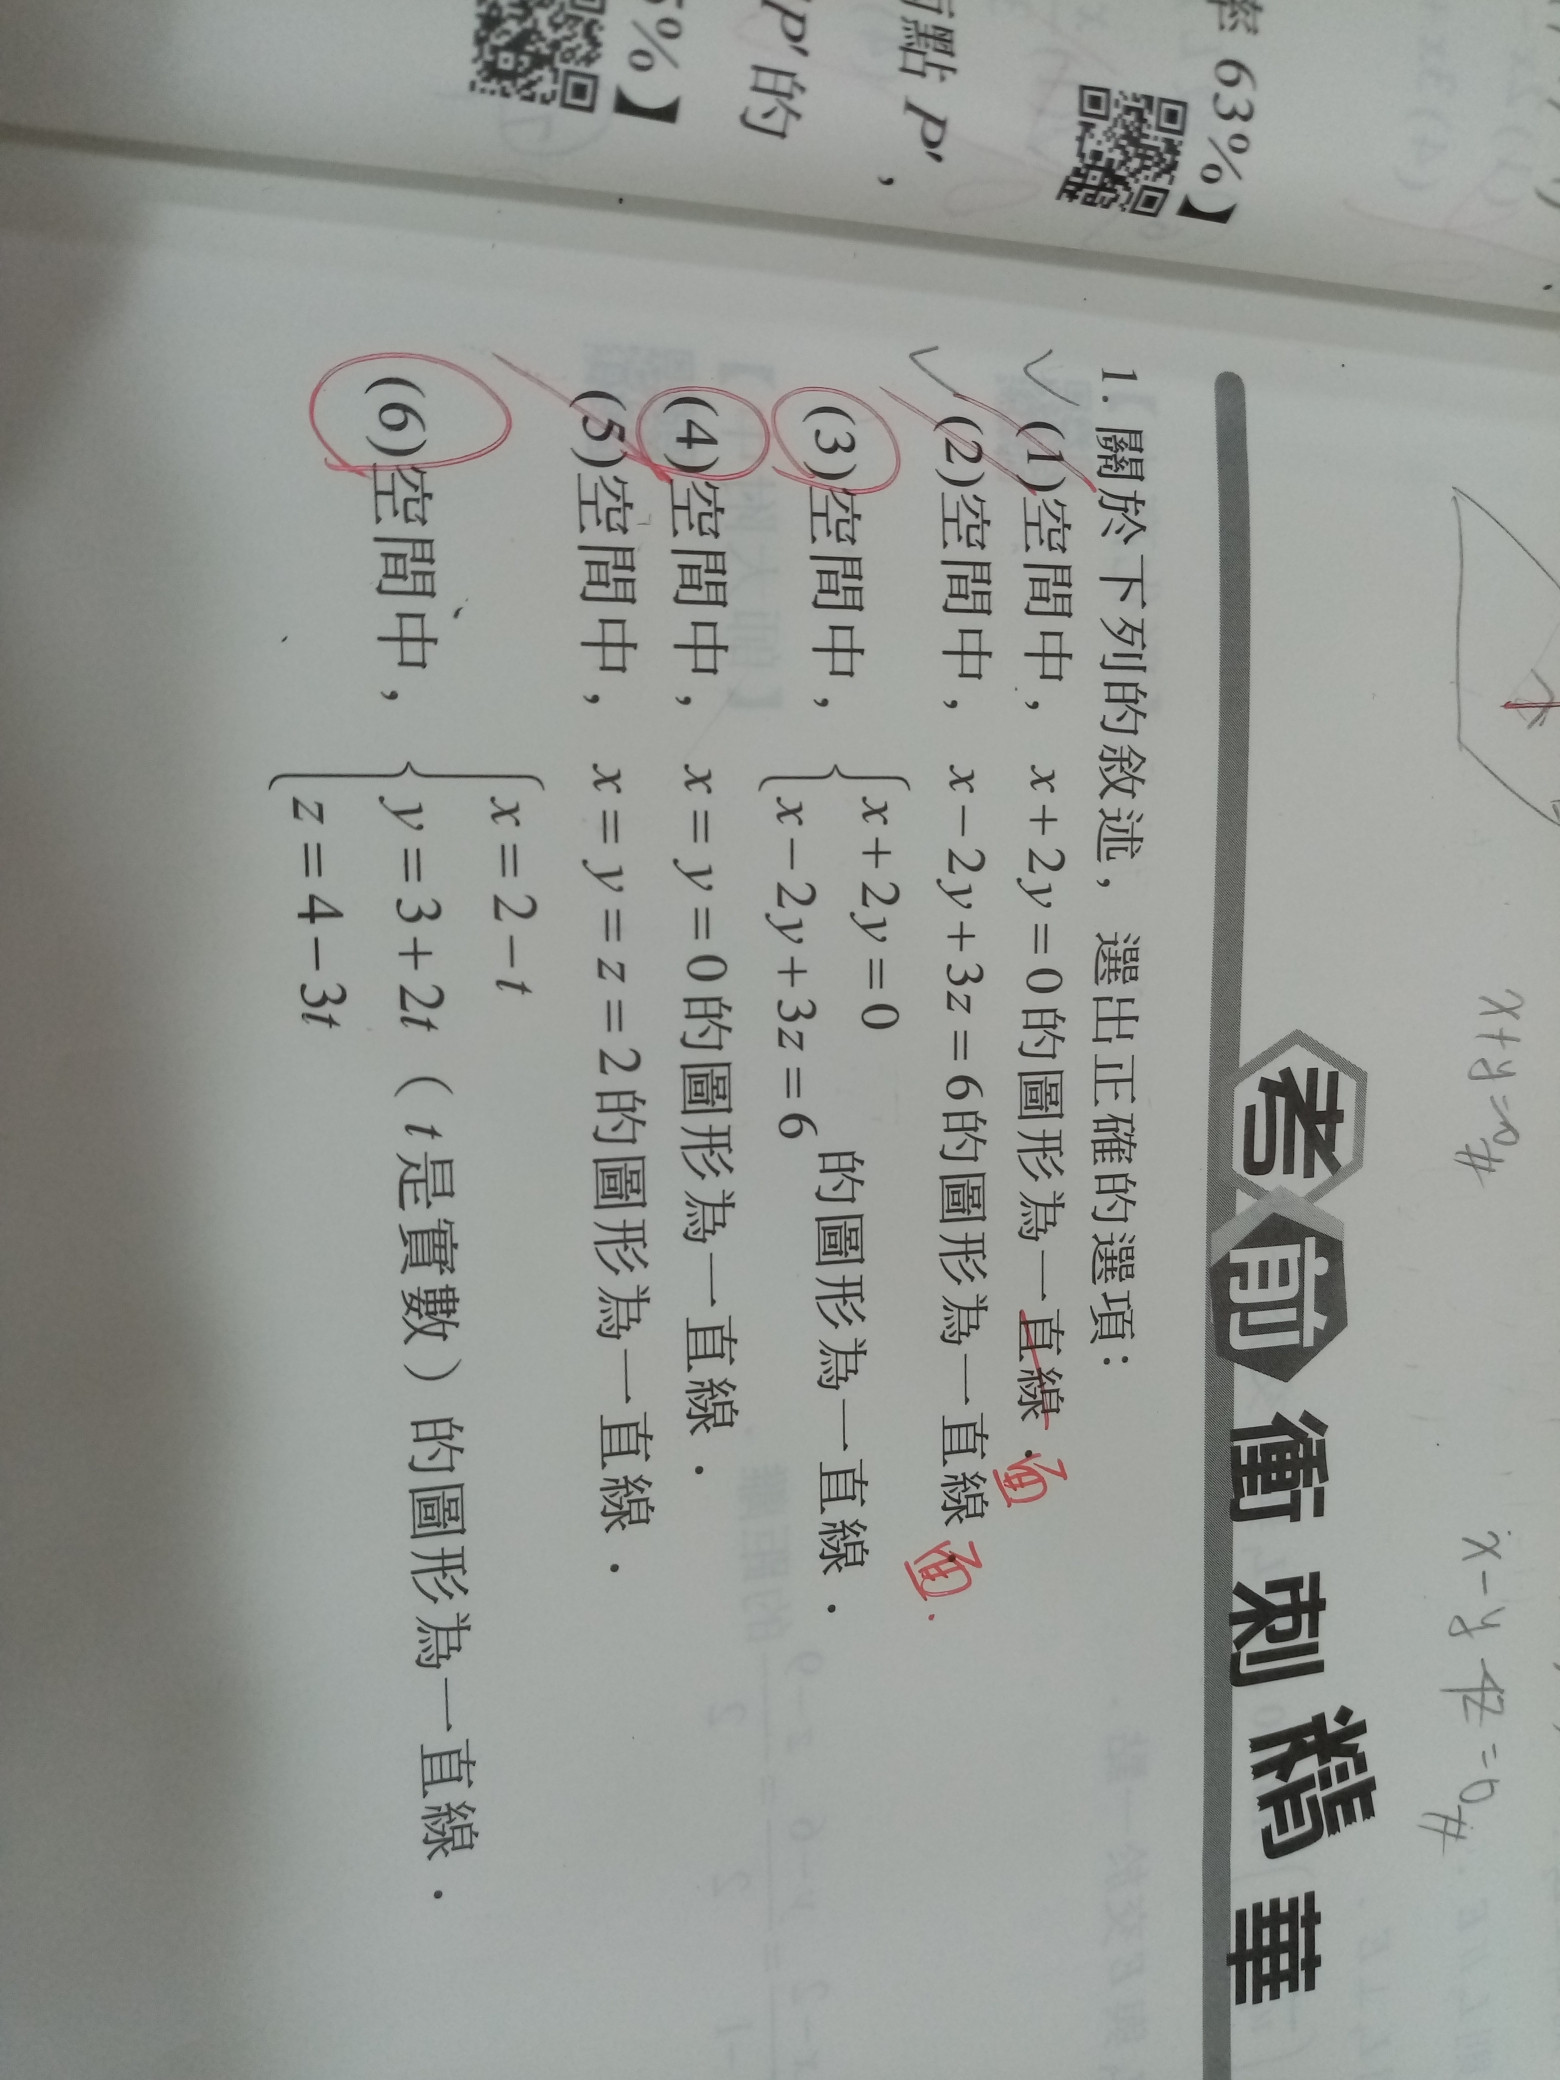 率 63%】
有點 P′,
P′的
5%】
x+y=0#
x-y-z=0#
考前衝刺精華
1. 關於下列的敘述，選出正確的選項：
(1)空間中，x+2y=0的圖形為一直線．面
(2)空間中，x-2y+3z=6的圖形為一直線．面.
(3)空間中，{x+2y=0
x-2y+3z=6 的圖形為一直線．
(4)空間中，x=y=0的圖形為一直線．
(5)空間中，x=y=z=2的圖形為一直線．
(6)空間中，{x=2-t
y=3+2t（t是實數）的圖形為一直線．
z=4-3t